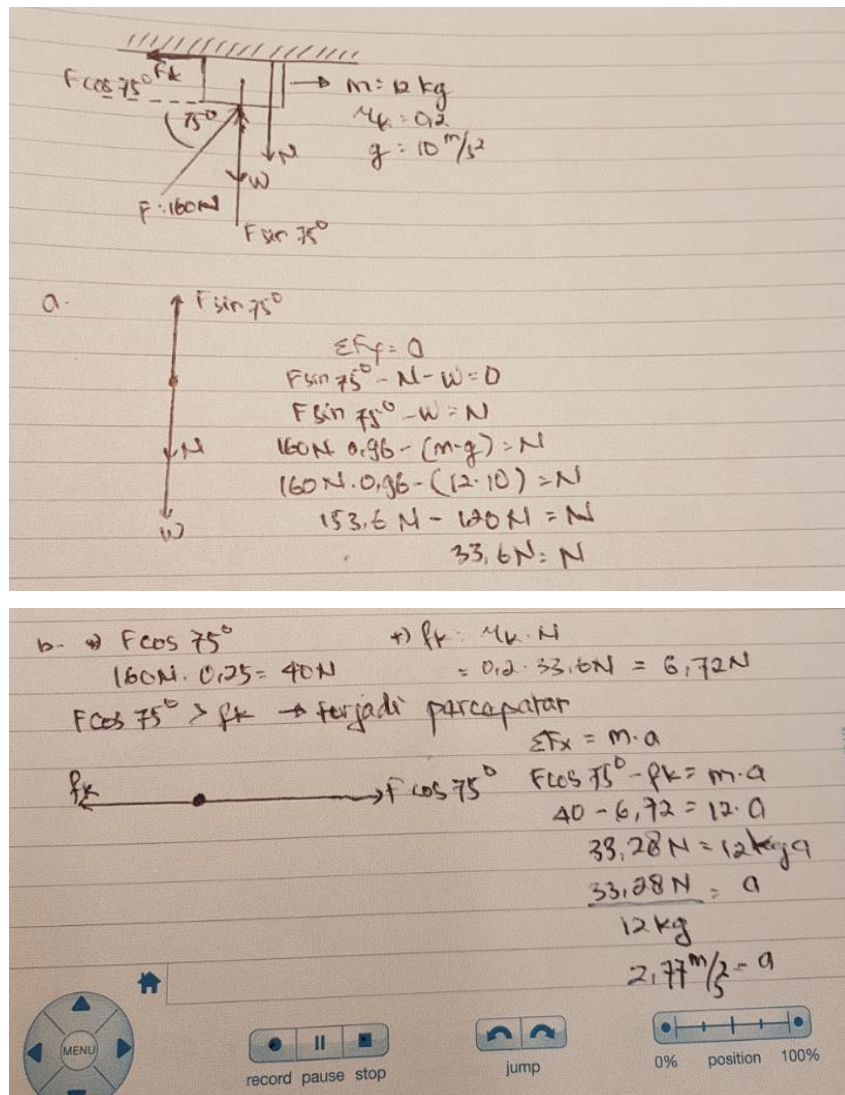 F cos 75° fk
→ m = 12 kg
μk = 0,2
g = 10 m/s²
75°
N
W
F = 160N
F sin 75°
a.
F sin 75°
N
W
ΣFy = 0
F sin 75° - N - W = 0
F sin 75° - W = N
160N. 0,96 - (m·g) = N
160N. 0,96 - (12·10) = N
153,6 N - 120N = N
33,6N = N
b. *) F cos 75°
160N. 0,25 = 40N
*) fk = μk. N
= 0,2 · 33,6N = 6,72N
F cos 75° > fk → terjadi percepatan
fk
F cos 75°
ΣFx = m·a
F cos 75° - fk = m·a
40 - 6,72 = 12·a
33,28N = 12kg a
33,28N = a
12kg
2,77 m/s² = a
MENU
record pause stop
jump
0% position 100%